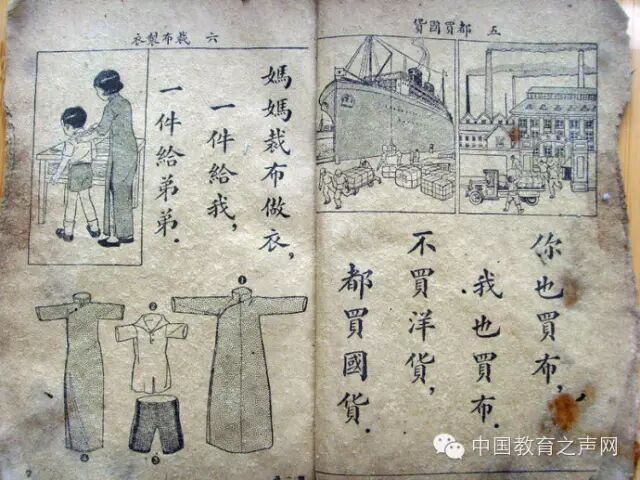 五 都買國貨
你也買布，
我也買布．
不買洋貨，
都買國貨．
六 裁布製衣
媽媽裁布做衣，
一件給我，
一件給弟弟．
❶
❷
❸
❹
中国教育之声网